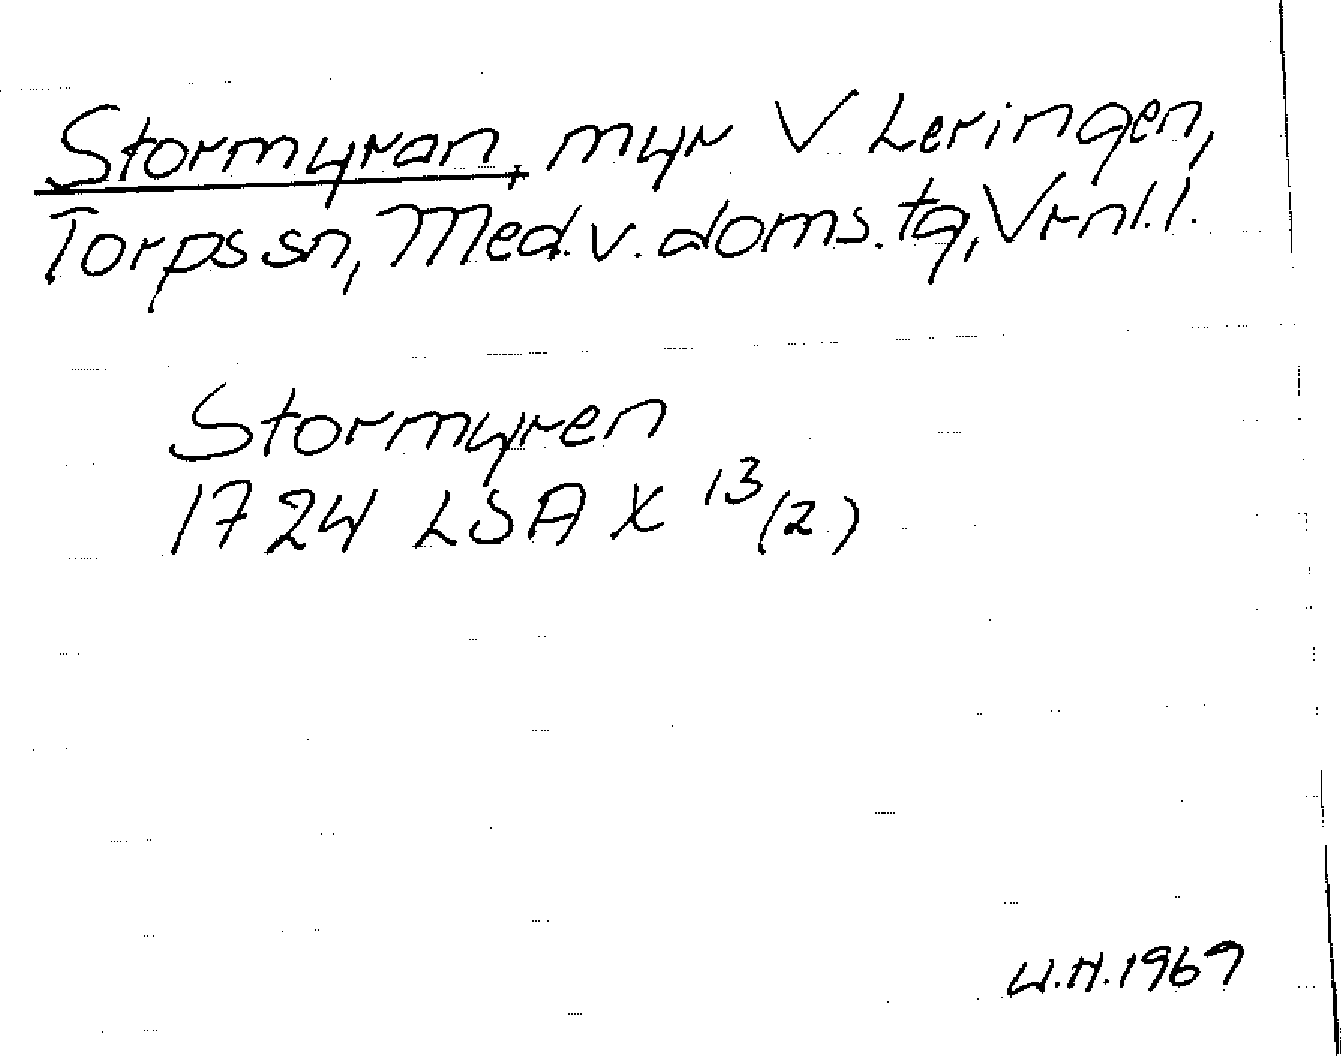 Stormyran, myr V Leringen,
Torps sn, Med.v. doms. tg, Vrnl. l.
Stormyren
1724 LSA X 13 (2)
U.H. 1969